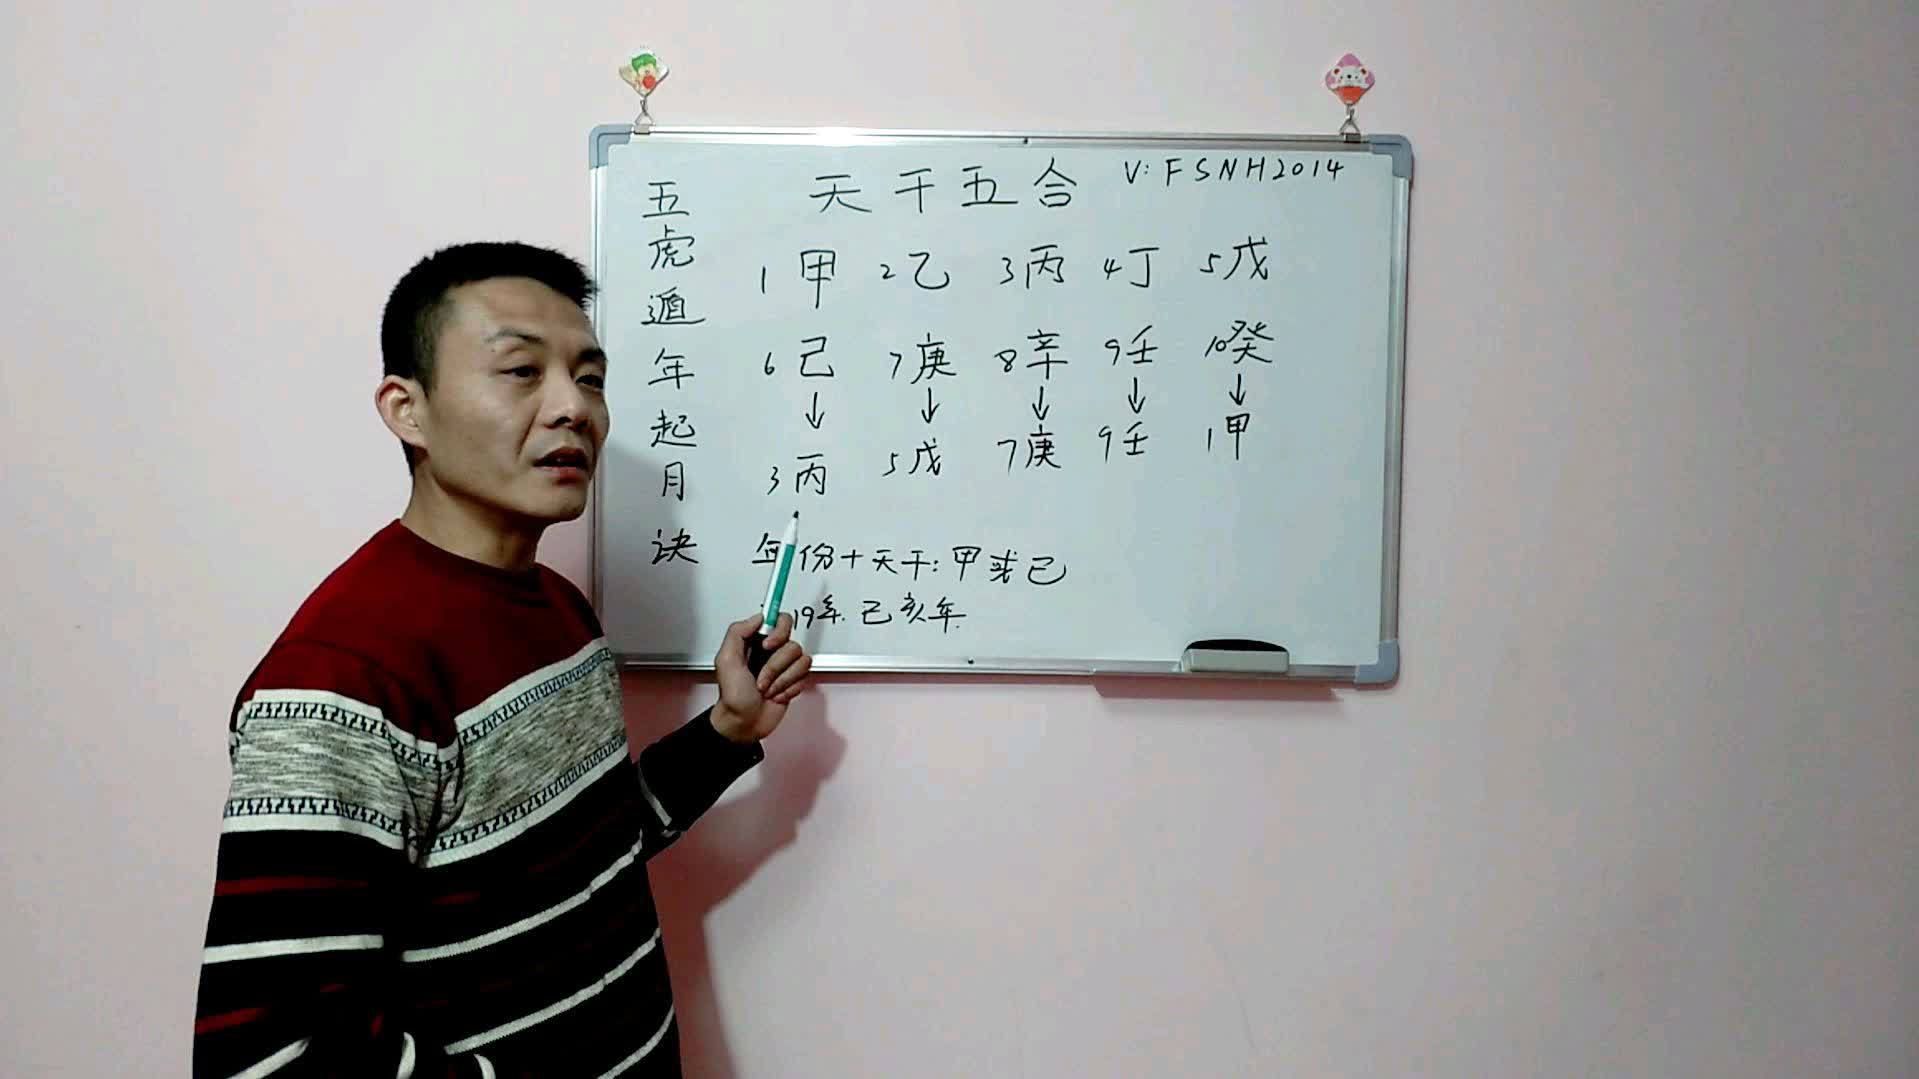 天干五合
V: FSNH2014
五虎遁年起月诀
1甲 2乙 3丙 4丁 5戊
6己 7庚 8辛 9壬 10癸
↓ ↓ ↓ ↓ ↓
3丙 5戊 7庚 9壬 1甲
年份+天干:甲或己
19年.己亥年.